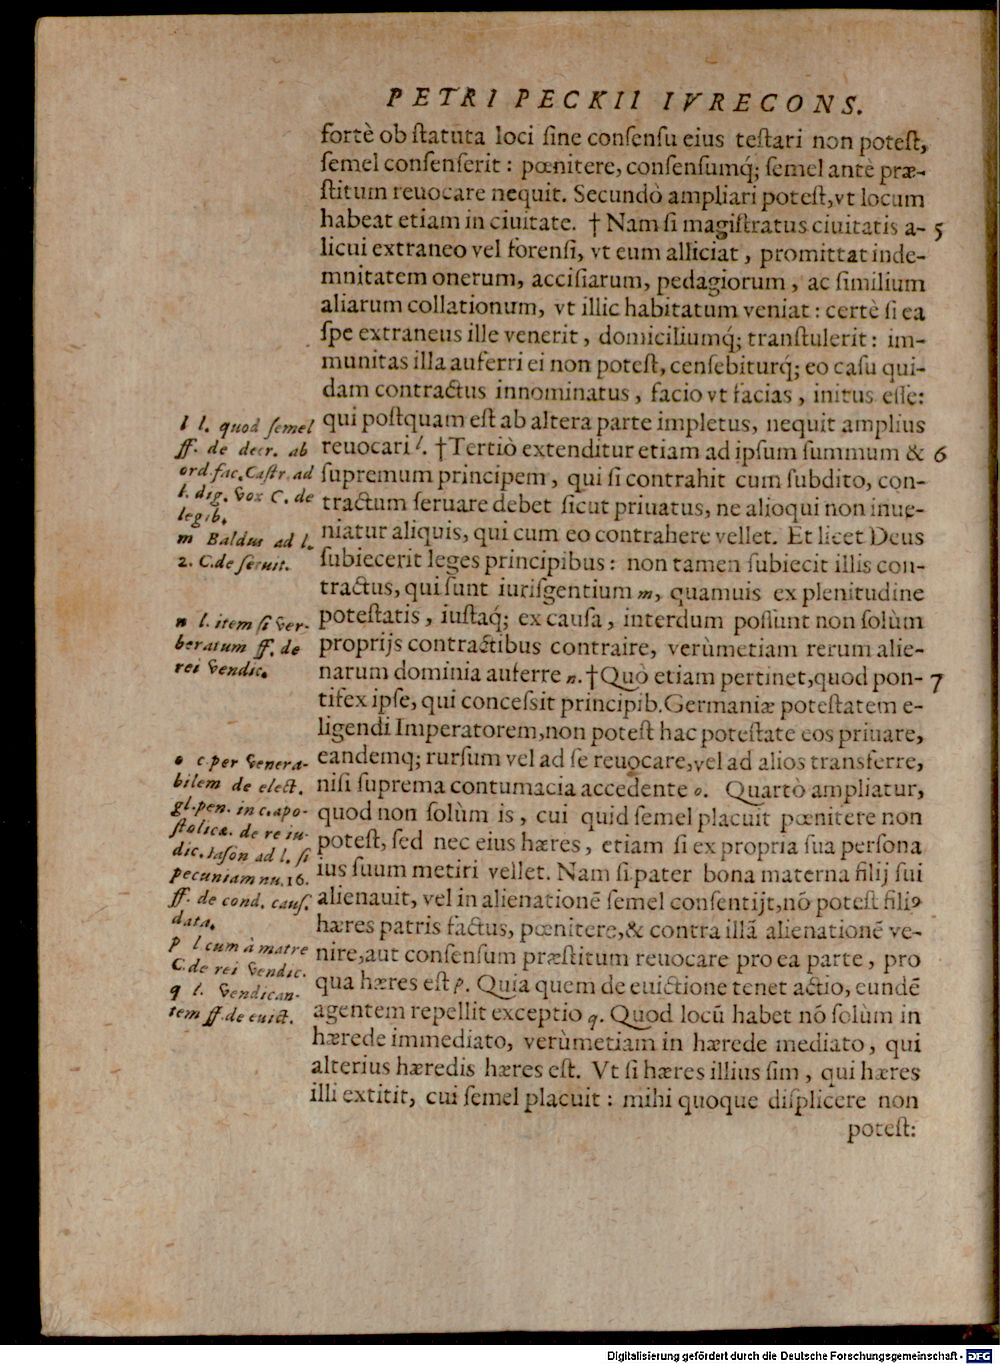 PETRI PECKII IVRECONS.
fortè ob ſtatuta loci ſine conſenſu eius teſtari non poteſt,
ſemel conſenſerit : pœnitere, conſenſumq́; ſemel antè præ-
ſtitum reuocare nequit. Secundò ampliari poteſt, vt locum
habeat etiam in ciuitate. † Nam ſi magiſtratus ciuitatis a- 5
licui extraneo vel forenſi, vt eum alliciat, promittat inde-
mnitatem onerum, acciſiarum, pedagiorum, ac ſimilium
aliarum collationum, vt illic habitatum veniat : certè ſi ea
ſpe extraneus ille venerit, domiciliumq́; tranſtulerit : im-
munitas illa auferri ei non poteſt, cenſebiturq́; eo caſu qui-
dam contractus innominatus, facio vt facias, initus eſſe:
qui poſtquam eſt ab altera parte impletus, nequit amplius
reuocari l. † Tertiò extenditur etiam ad ipſum ſummum & 6
ſupremum principem, qui ſi contrahit cum ſubdito, con-
tractum ſeruare debet ſicut priuatus, ne alioqui non inue-
niatur aliquis, qui cum eo contrahere vellet. Et licet Deus
ſubiecerit leges principibus : non tamen ſubiecit illis con-
tractus, qui ſunt iuriſgentium m, quamuis ex plenitudine
poteſtatis, iuſtaq́; ex cauſa, interdum poſſunt non ſolùm
proprijs contractibus contraire, verùmetiam rerum alie-
narum dominia auferre n. † Quò etiam pertinet, quod pon- 7
tifex ipſe, qui conceſsit principib. Germaniæ poteſtatem e-
ligendi Imperatorem, non poteſt hac poteſtate eos priuare,
eandemq; rurſum vel ad ſe reuocare, vel ad alios transferre,
niſi ſuprema contumacia accedente o. Quartò ampliatur,
quod non ſolùm is, cui quid ſemel placuit pœnitere non
poteſt, ſed nec eius hæres, etiam ſi ex propria ſua perſona
ius ſuum metiri vellet. Nam ſi pater bona materna filij ſui
alienauit, vel in alienationē ſemel conſentijt, nō poteſt filiꝰ
hæres patris factus, pœnitere, & contra illā alienationē ve-
nire, aut conſenſum præſtitum reuocare pro ea parte, pro
qua hæres eſt p. Quia quem de euictione tenet actio, eundē
agentem repellit exceptio q. Quod locū habet nō ſolùm in
hærede immediato, verùmetiam in hærede mediato, qui
alterius hæredis hæres eſt. Vt ſi hæres illius ſim, qui hæres
illi extitit, cui ſemel placuit : mihi quoque diſplicere non
poteſt:
l l. quod ſemel
ff. de decr. ab
ord. fac. Caſtr. ad
l. dig. vox C. de
legib.
m Baldus ad l.
2. C. de ſeruit.
n l. item ſi ver-
beratum ff. de
rei vendic.
o c. per venera-
bilem de elect.
gl. pen. in c. apo-
ſtolicæ. de re iu-
dic. Iaſon ad l. ſi
pecuniam nu. 16.
ff. de cond. cauſ.
data.
p l cum à matre
C. de rei vendic.
q l. vendican-
tem ff. de euict.
Digitalisierung gefördert durch die Deutsche Forschungsgemeinschaft - DFG